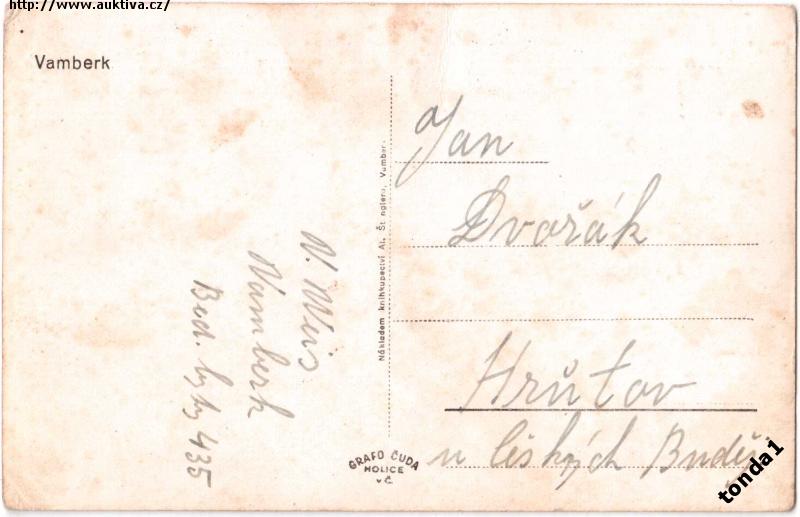 http://www.auktiva.cz/
Vamberk
Jan
Dvořák
Hrůtov
u českých Buděj
V. Weis
Vamberk
Bud. byty 435
Nákladem knihkupectví Al. Št nglera, Vamber
GRAFO ČUDA
HOLICE
v Č.
tonda1